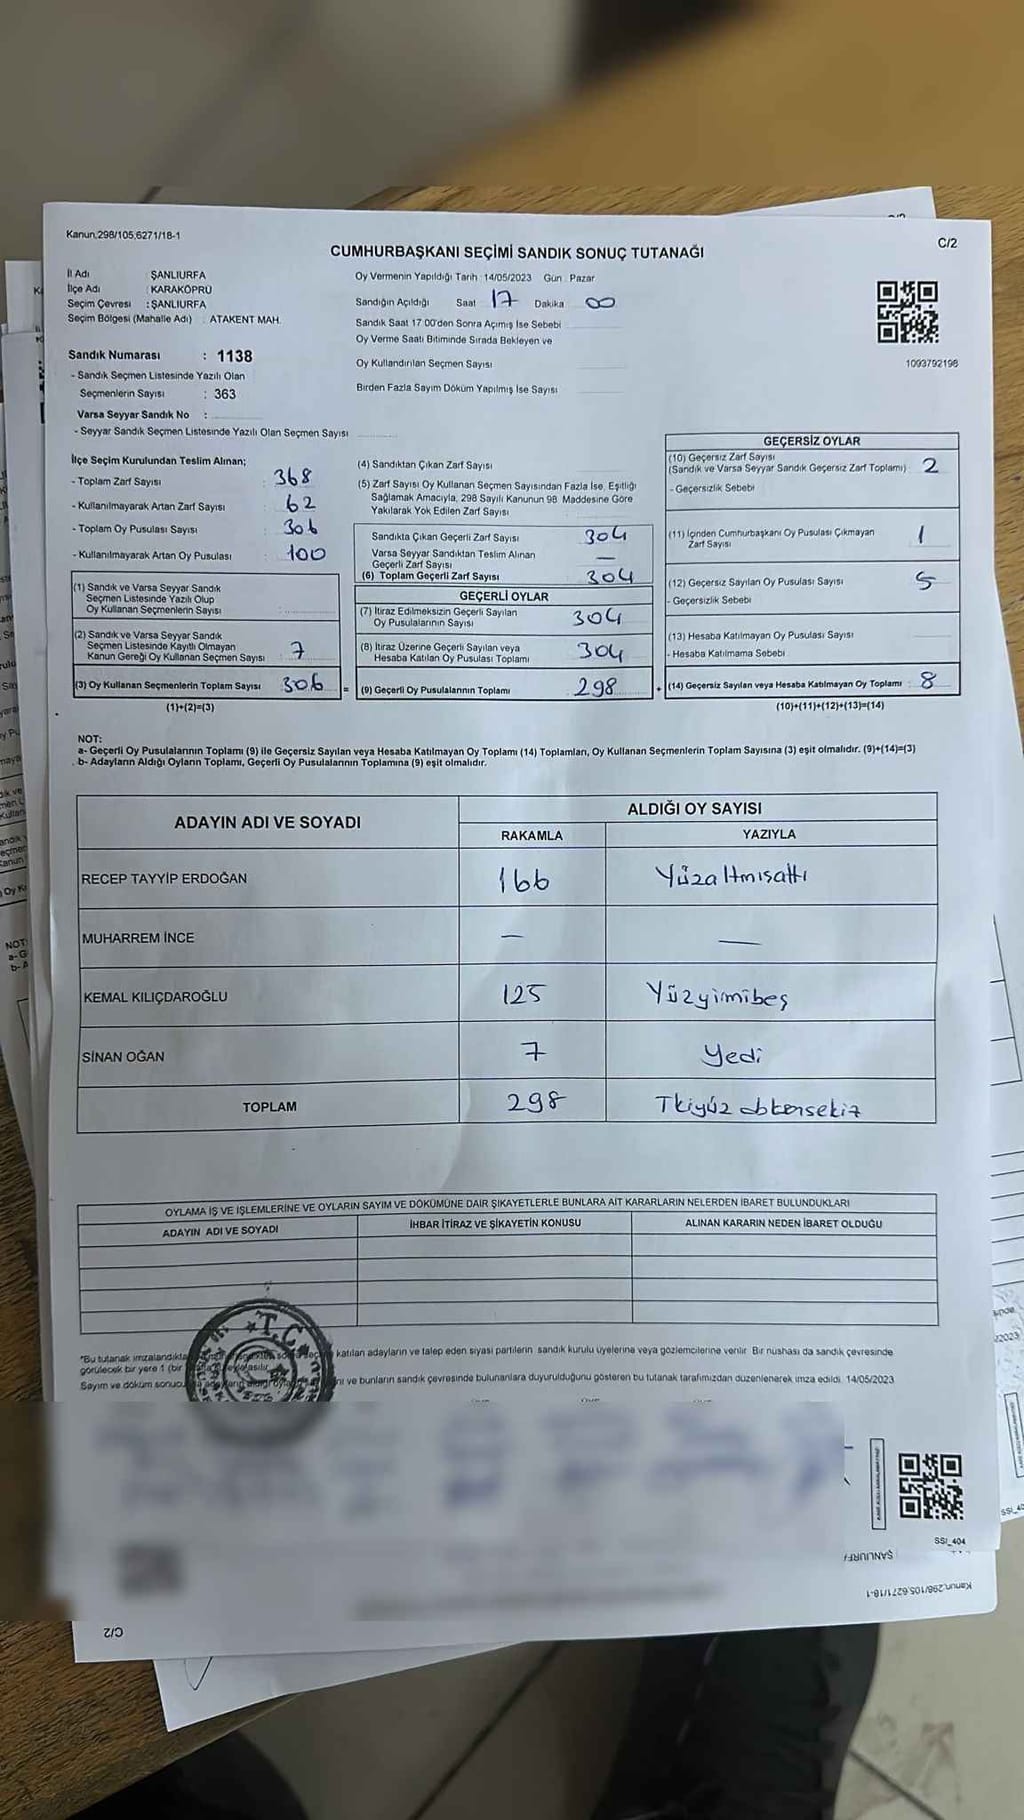 Kanun,298/105,6271/18-1
C/2
CUMHURBAŞKANI SEÇİMİ SANDIK SONUÇ TUTANAĞI
İl Adı : ŞANLIURFA
İlçe Adı : KARAKÖPRÜ
Seçim Çevresi : ŞANLIURFA
Seçim Bölgesi (Mahalle Adı) : ATAKENT MAH.
Sandık Numarası : 1138
- Sandık Seçmen Listesinde Yazılı Olan
Seçmenlerin Sayısı : 363
Varsa Seyyar Sandık No :
- Seyyar Sandık Seçmen Listesinde Yazılı Olan Seçmen Sayısı
Oy Vermenin Yapıldığı Tarih :14/05/2023 Gün : Pazar
Sandığın Açıldığı Saat 17 Dakika 00
Sandık Saat 17:00'den Sonra Açımış İse Sebebi
Oy Verme Saati Bitiminde Sırada Bekleyen ve
Oy Kullandırılan Seçmen Sayısı
Birden Fazla Sayım Döküm Yapılmış İse Sayısı
1093792198
İlçe Seçim Kurulundan Teslim Alınan;
- Toplam Zarf Sayısı : 368
- Kullanılmayarak Artan Zarf Sayısı : 62
- Toplam Oy Pusulası Sayısı : 306
- Kullanılmayarak Artan Oy Pusulası : 100
(1) Sandık ve Varsa Seyyar Sandık
Seçmen Listesinde Yazılı Olup
Oy Kullanan Seçmenlerin Sayısı :
(2) Sandık ve Varsa Seyyar Sandık
Seçmen Listesinde Kayıtlı Olmayan
Kanun Gereği Oy Kullanan Seçmen Sayısı : 7
(3) Oy Kullanan Seçmenlerin Toplam Sayısı : 306
(1)+(2)=(3)
(4) Sandıktan Çıkan Zarf Sayısı
(5) Zarf Sayısı Oy Kullanan Seçmen Sayısından Fazla İse, Eşitliği
Sağlamak Amacıyla, 298 Sayılı Kanunun 98. Maddesine Göre
Yakılarak Yok Edilen Zarf Sayısı
Sandıkta Çıkan Geçerli Zarf Sayısı 304
Varsa Seyyar Sandıktan Teslim Alınan
Geçerli Zarf Sayısı —
(6) Toplam Geçerli Zarf Sayısı 304
GEÇERLİ OYLAR
(7) İtiraz Edilmeksizin Geçerli Sayılan
Oy Pusulalarının Sayısı 304
(8) İtiraz Üzerine Geçerli Sayılan veya
Hesaba Katılan Oy Pusulası Toplamı 304
= (9) Geçerli Oy Pusulalarının Toplamı 298
GEÇERSİZ OYLAR
(10) Geçersiz Zarf Sayısı
(Sandık ve Varsa Seyyar Sandık Geçersiz Zarf Toplamı) 2
- Geçersizlik Sebebi
(11) İçinden Cumhurbaşkanı Oy Pusulası Çıkmayan
Zarf Sayısı 1
(12) Geçersiz Sayılan Oy Pusulası Sayısı 5
- Geçersizlik Sebebi
(13) Hesaba Katılmayan Oy Pusulası Sayısı
- Hesaba Katılmama Sebebi
+ (14) Geçersiz Sayılan veya Hesaba Katılmayan Oy Toplamı : 8
(10)+(11)+(12)+(13)=(14)
NOT:
a- Geçerli Oy Pusulalarının Toplamı (9) ile Geçersiz Sayılan veya Hesaba Katılmayan Oy Toplamı (14) Toplamları, Oy Kullanan Seçmenlerin Toplam Sayısına (3) eşit olmalıdır. (9)+(14)=(3)
b- Adayların Aldığı Oyların Toplamı, Geçerli Oy Pusulalarının Toplamına (9) eşit olmalıdır.
ADAYIN ADI VE SOYADI
ALDIĞI OY SAYISI
RAKAMLA YAZIYLA
RECEP TAYYİP ERDOĞAN 166 Yüzaltmısattı
MUHARREM İNCE — —
KEMAL KILIÇDAROĞLU 125 Yüzyimibeş
SİNAN OĞAN 7 Yedi
TOPLAM 298
OYLAMA İŞ VE İŞLEMLERİNE VE OYLARIN SAYIM VE DÖKÜMÜNE DAİR ŞİKAYETLERLE BUNLARA AİT KARARLARIN NELERDEN İBARET BULUNDUKLARI
ADAYIN ADI VE SOYADI İHBAR İTİRAZ VE ŞİKAYETİN KONUSU ALINAN KARARIN NEDEN İBARET OLDUĞU
T.C.
*Bu tutanak imzalandıkta katılan adayların ve talep eden siyasi partilerin sandık kurulu üyelerine veya gözlemcilerine verilir. Bir nüshası da sandık çevresinde
görülecek bir yere 1 (bir
Sayım ve döküm sonucu ve bunların sandık çevresinde bulunanlara duyurulduğunu gösteren bu tutanak tarafımızdan düzenlenerek imza edildi. 14/05/2023
SSI_404
ŞANLIURF
Kanun,298/105,6271/18-1
C/2